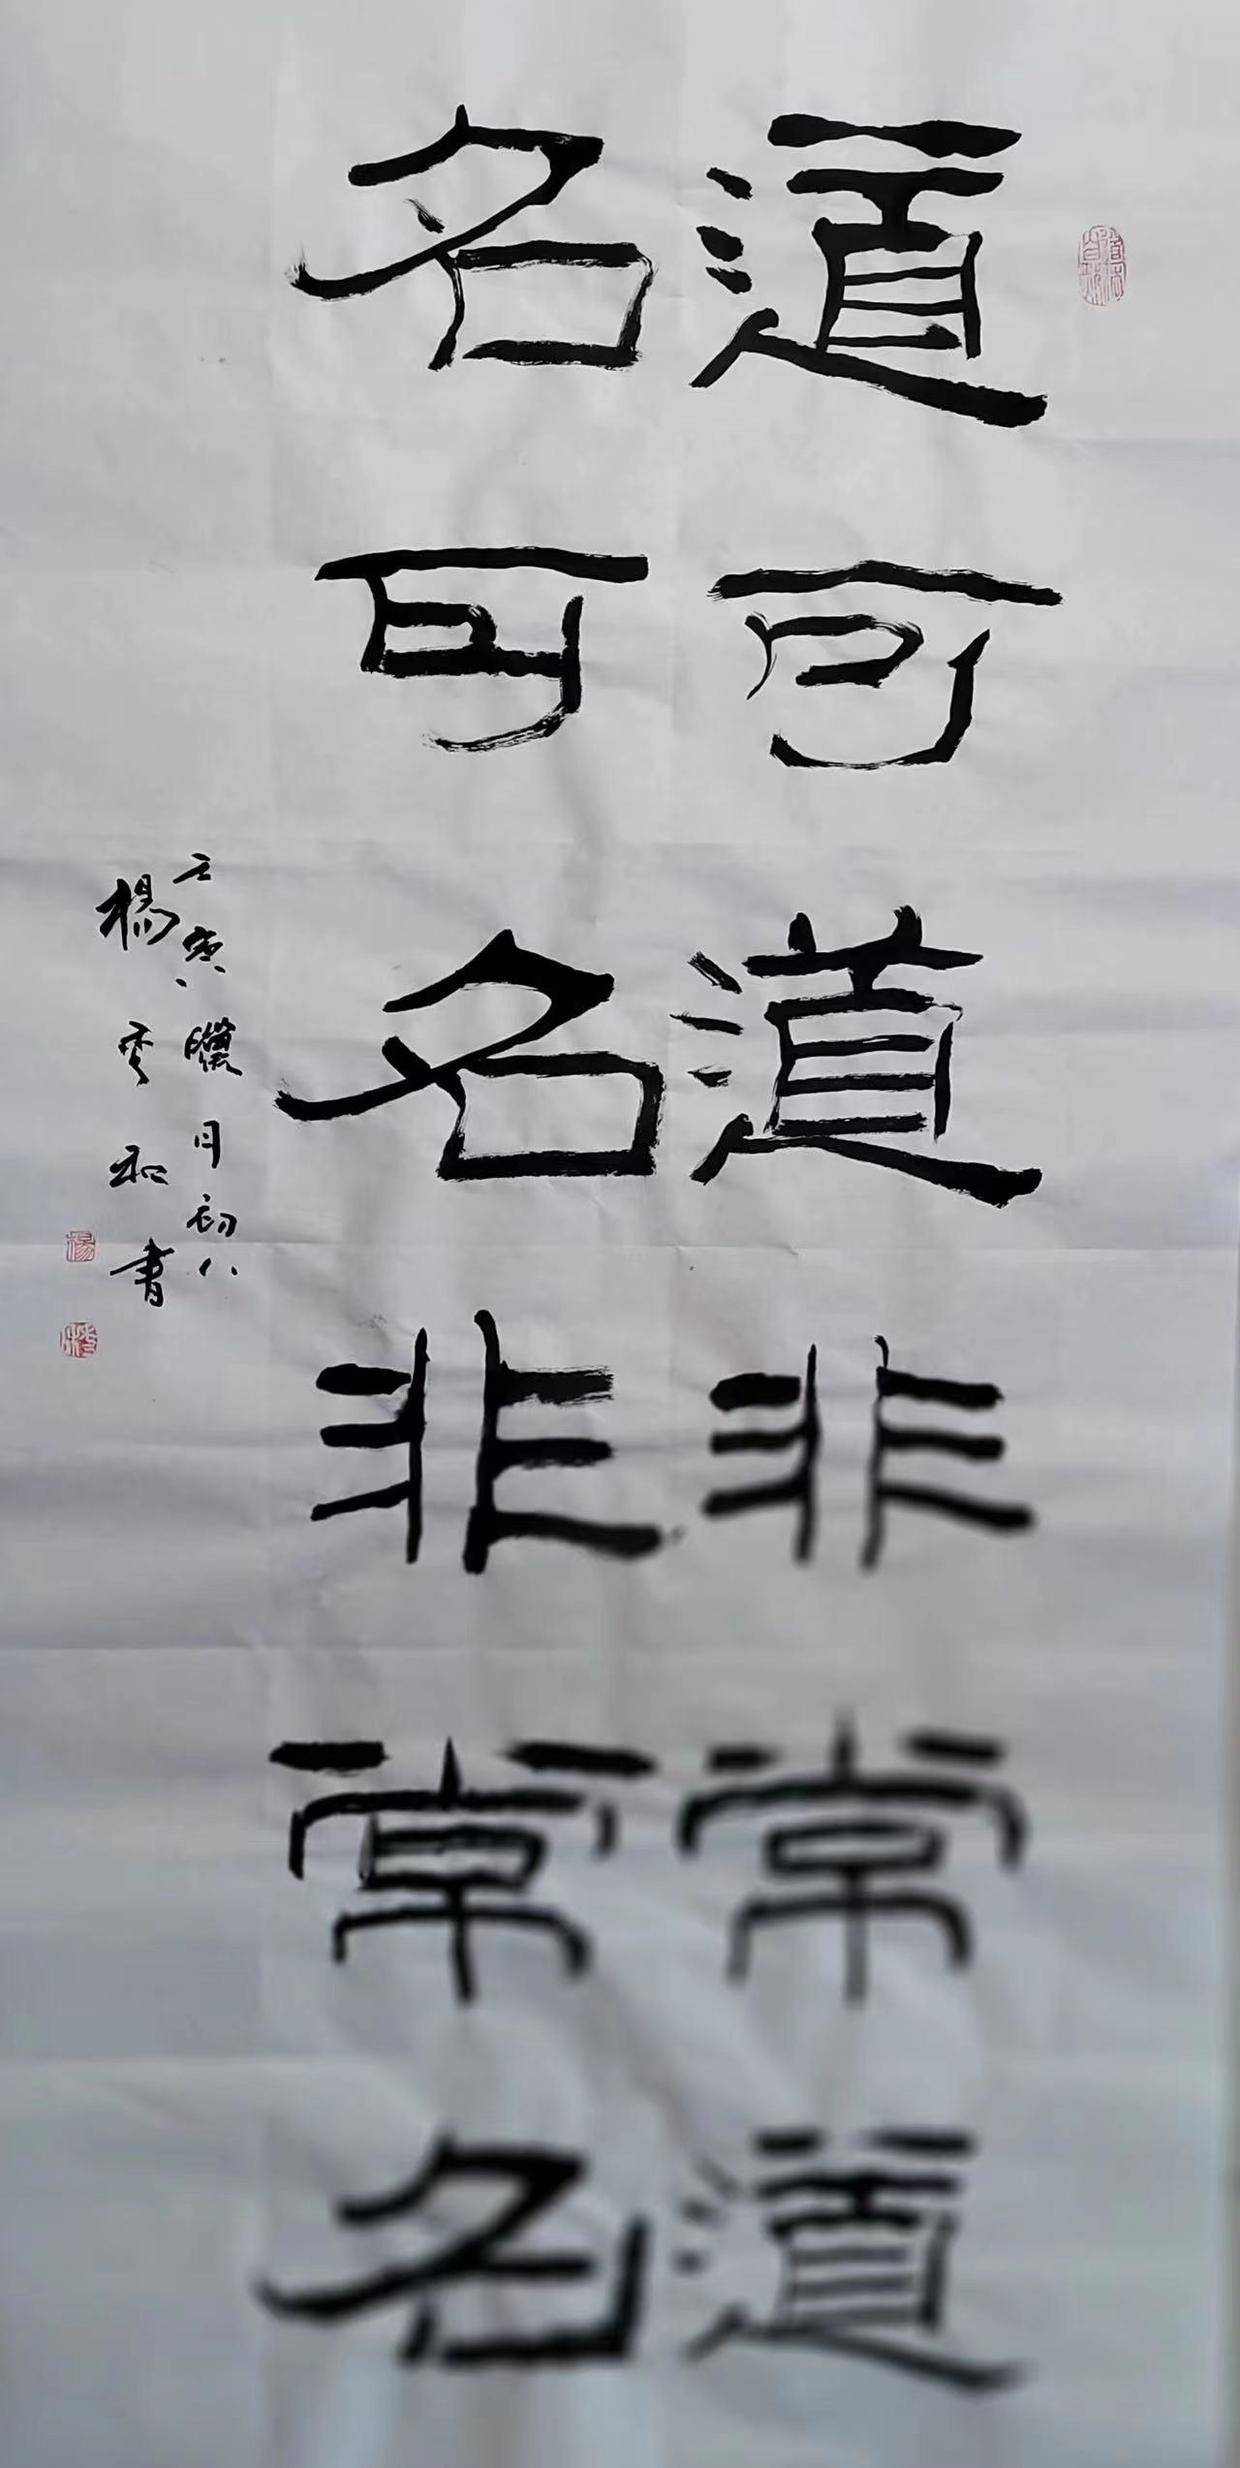 道可道非常道
名可名非常名
壬寅臘月初八
楊秀和書